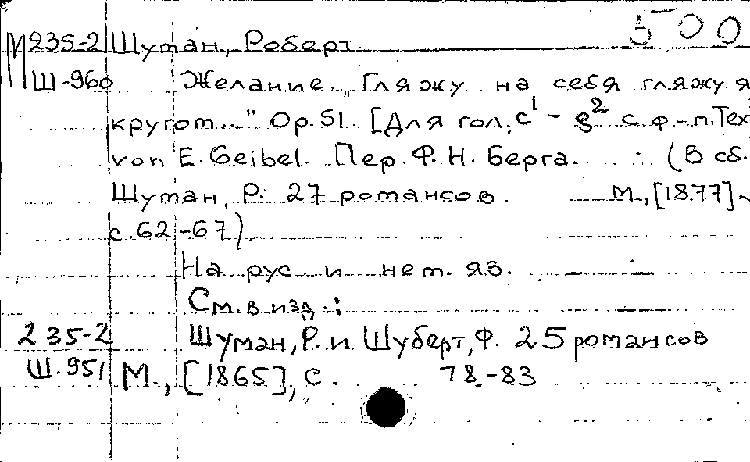 500
М235-2 Шуман, Роберт
Ш-960 Желание. „Гляжу на себя гляжу я
кругом..." Op. 51. [Для гол, c¹ - g² с ф-п. Тех
von E. Geibel. Пер. Ф. Н. Берга. (В сб.
Шуман, Р. 27 романсов. М., [1877]
с. 62-67)
На рус и нем. яз.
См. в изд.:
235-2 Шуман, Р. и Шуберт, Ф. 25 романсов
Ш.951 М., [1865], с. 78-83